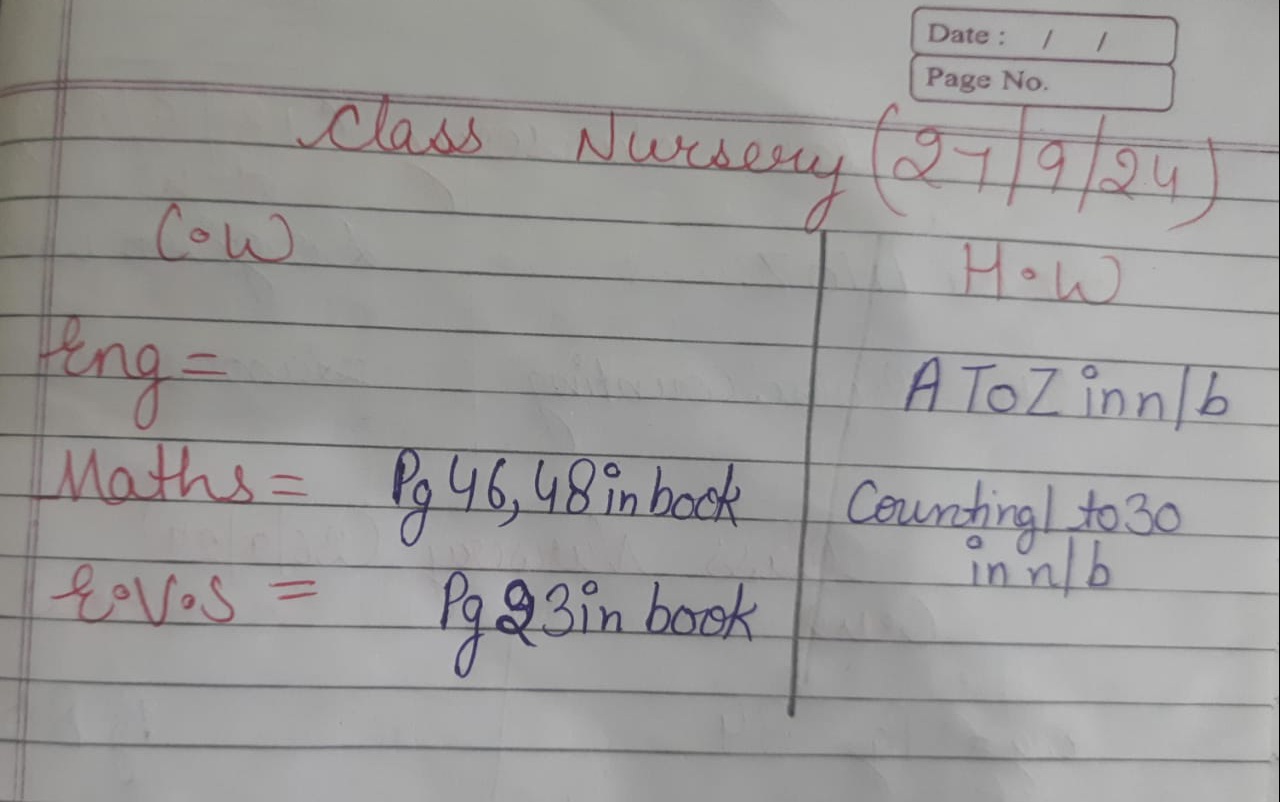 Date : / /
Page No.
Class Nursery (27/9/24)
C.W H.W
Eng = A To Z in n/b
Maths = Pg 46, 48 in book Counting 1 to 30
in n/b
E.V.S = Pg 23 in book